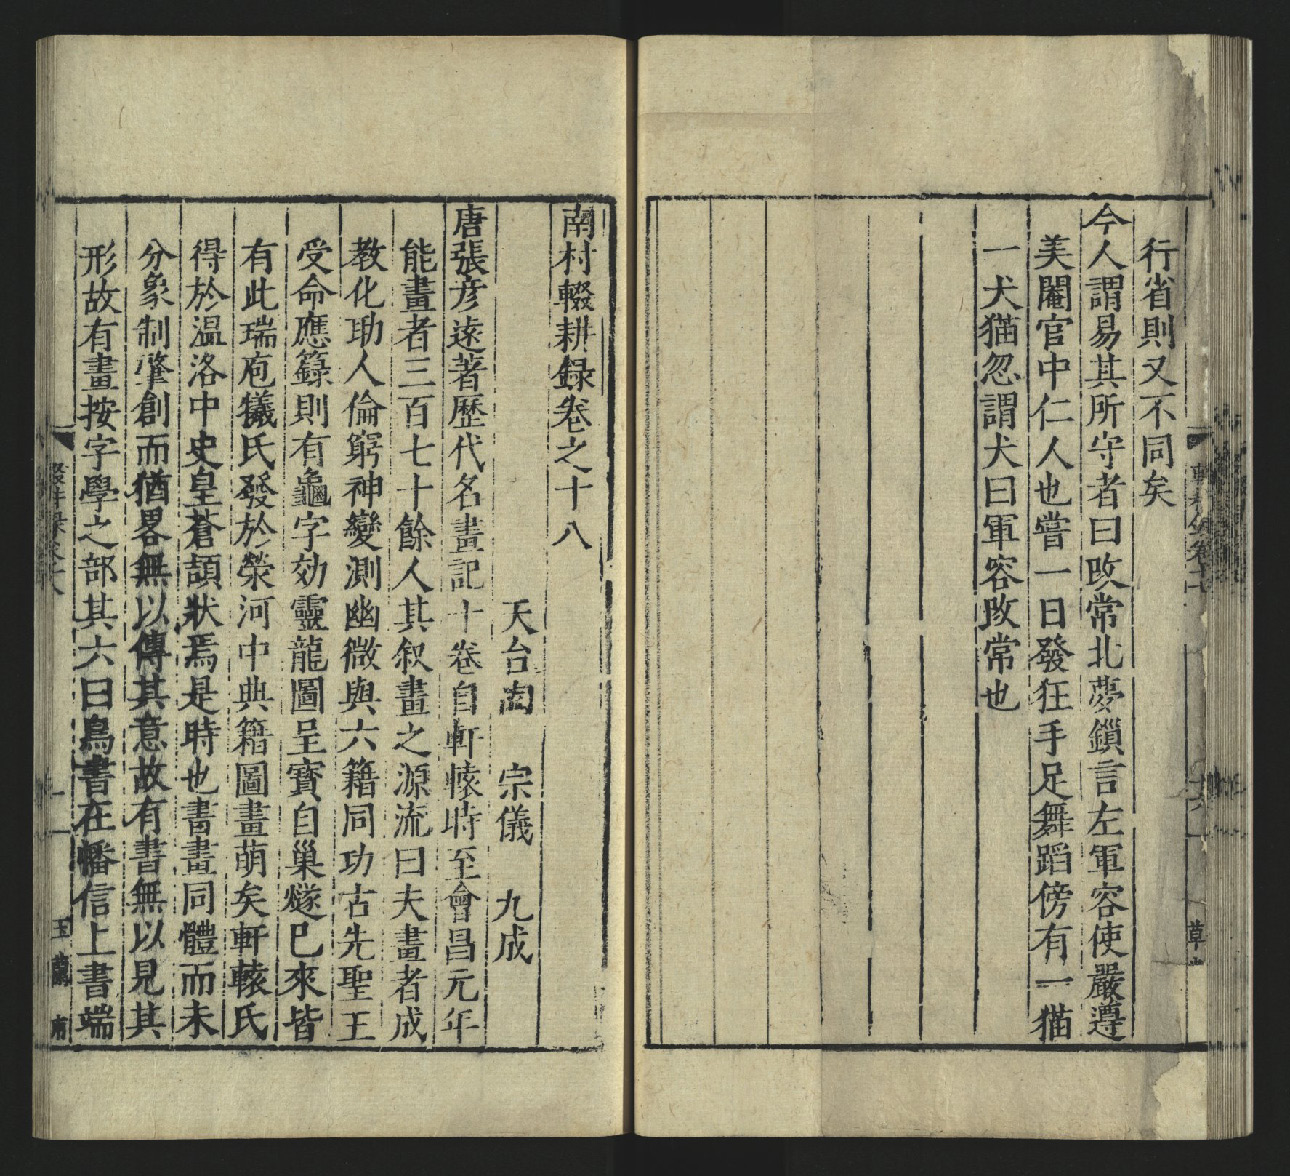 行省則又不同矣
今人謂易其所守者曰改常北夢鎻言左軍容使嚴遵
美閹官中仁人也嘗一日發狂手足舞蹈傍有一猫
一犬猫忽謂犬曰軍容改常也
南村輟耕録卷之十八
天台陶 宗儀 九成
唐張彦逺著歴代名畫記十卷自軒轅時至會昌元年
能畫者三百七十餘人其叙畫之源流曰夫畫者成
教化助人倫窮神變測幽微與六籍同功古先聖王
受命應籙則有龜字効靈龍圖呈寳自巢燧已來皆
有此瑞庖犧氏發於滎河中典籍圖畫萌矣軒轅氏
得於温洛中史皇蒼頡狀焉是時也書畫同體而未
分象制肇創而猶畧無以傳其意故有書無以見其
形故有畫按字學之部其六曰鳥書在幡信上書端